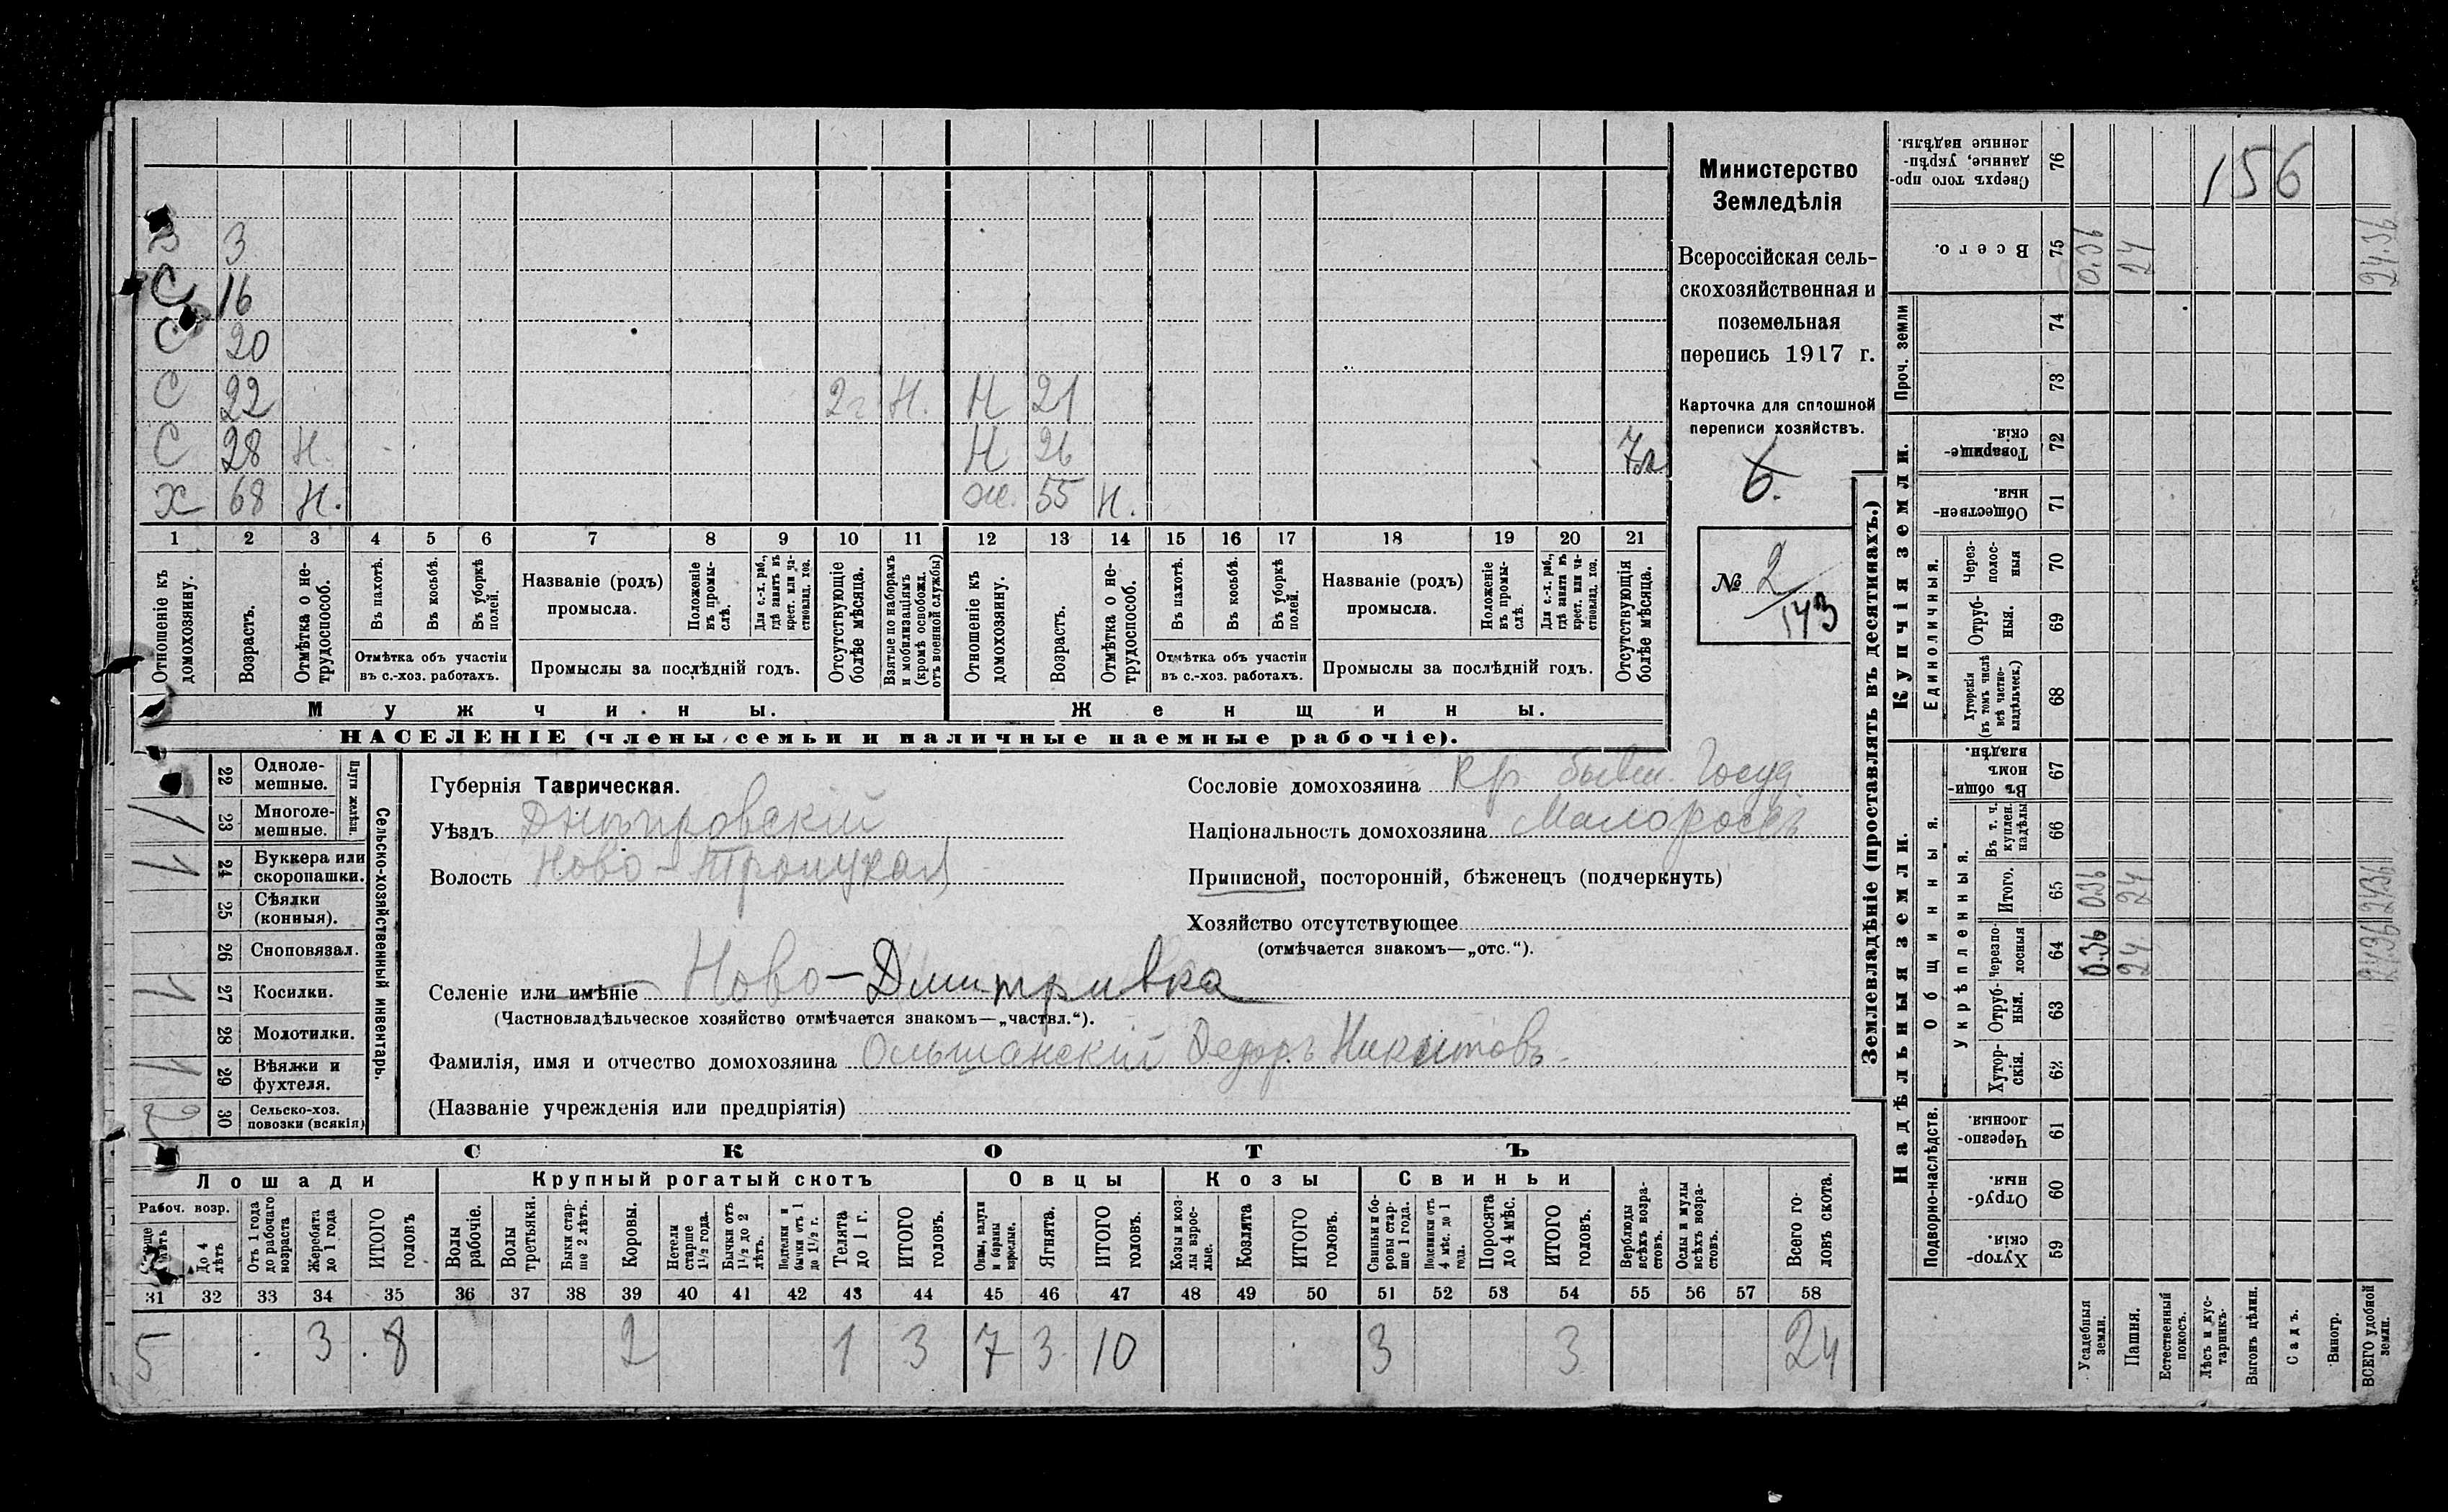 З 3
С 16
С 20
С 22 2 г Н. Н 21
С 28 Н. Н 26 7м
Х 68 Н. Ж. 55 Н.
1 2 3 4 5 6 7 8 9 10 11 12 13 14 15 16 17 18 19 20 21
Отношеніе къ домохозяину.
Возрастъ.
Отмѣтка о нетрудоспособ.
Въ пахотѣ.
Въ косьбѣ.
Въ уборкѣ полей.
Отмѣтка объ участіи
въ с.-хоз. работахъ.
Названіе (родъ)
промысла.
Положеніе въ промыслѣ.
Для с.-х. раб., гдѣ занятъ въ крест. или частновлад. хоз.
Промыслы за послѣдній годъ.
Отсутствующіе болѣе мѣсяца.
Взятые по наборамъ и мобилизаціямъ (кромѣ освобожд. отъ военной службы)
Отношеніе къ домохозяину.
Возрастъ.
Отмѣтка о нетрудоспособ.
Въ пахотѣ.
Въ косьбѣ.
Въ уборкѣ полей.
Отмѣтка объ участіи
въ с.-хоз. работахъ.
Названіе (родъ)
промысла.
Положеніе въ промыслѣ.
Для с.-х. раб., гдѣ занята въ крест. или частновлад. хоз.
Промыслы за послѣдній годъ.
Отсутствующія болѣе мѣсяца.
Мужчины.
Женщины.
НАСЕЛЕНІЕ (члены семьи и наличные наемные рабочіе).
Министерство
Земледѣлія
Всероссійская сель-
скохозяйственная и
поземельная
перепись 1917 г.
Карточка для сплошной
переписи хозяйствъ.
6.
№ 2/143
Сельско-хозяйственный инвентарь.
Плуги желѣзн.
22 Одноле-
мешные.
23 Многоле-
мешные. 1
24 Буккера или
скоропашки. 1
25 Сѣялки
(конныя).
26 Сноповязал.
27 Косилки. 1
28 Молотилки.
29 Вѣялки и
фухтеля. 1
30 Сельско-хоз.
повозки (всякія) 2
Губернія Таврическая.
Уѣздъ Днѣпровскій
Волость Ново-Троицкая
Селеніе или имѣніе Ново-Дмитривка
(Частновладѣльческое хозяйство отмѣчается знакомъ—„частвл.“).
Фамилія, имя и отчество домохозяина Ольшанскій Федоръ Никитовъ
(Названіе учрежденія или предпріятія)
Сословіе домохозяина кр. бывш. Госуд
Національность домохозяина Малороссъ
Приписной, посторонній, бѣженецъ (подчеркнуть)
Хозяйство отсутствующее
(отмѣчается знакомъ—„отс.“).
СКОТЪ
Лошади
Крупный рогатый скотъ
Овцы
Козы
Свиньи
Рабоч. возр.
До 4 лѣтъ
Отъ 1 года до рабочаго возраста
Жеребята до 1 года
ИТОГО головъ
Волы рабочіе.
Волы третьяки.
Быки старше 2 лѣтъ.
Коровы.
Нетели старше 1½ года.
Бычки отъ 1½ до 2 лѣтъ.
Нетелки и бычки отъ 1 до 1½ г.
Телята до 1 г.
ИТОГО головъ.
Овцы, валухи и бараны взрослые.
Ягнята.
ИТОГО головъ.
Козы и козлы взрослые.
Козлята
ИТОГО головъ.
Свиньи и боровы старше 1 года.
Подсвинки отъ 4 мѣс. до 1 года.
Поросята до 4 мѣс.
ИТОГО головъ.
Верблюды всѣхъ возрастовъ.
Ослы и мулы всѣхъ возрастовъ.
Всего головъ скота.
31 32 33 34 35 36 37 38 39 40 41 42 43 44 45 46 47 48 49 50 51 52 53 54 55 56 57 58
5 3 8 2 1 3 7 3 10 3 3 24
Землевладѣніе (проставлять въ десятинахъ.)
156
Сверхъ того проданные, укрѣпленные надѣлы. 76
Всего. 75 0.36 24 24.36
Проч. земли
74
73
Купчія земли.
Товарищескія. 72
Общественныя. 71
Единоличныя.
Черезполосныя 70
Отрубныя. 69
Хуторскія (въ томъ числѣ всѣ частновладѣльческ.) 68
Надѣльныя земли.
Общинныя.
Въ общинномъ владѣн. 67
Укрѣпленныя.
Въ т. ч. куплен. надѣлы 66
Итого. 65 0.36 24 24.36
Черезполосныя 64 0.36 24 24.36
Отрубныя. 63
Хуторскія. 62
Подворно-наслѣдств.
Черезполосныя 61
Отрубныя. 60
Хуторскія. 59
Усадебныя земли.
Пашня.
Естественный покосъ.
Лѣсъ и кустарникъ.
Выгонъ цѣлин.
Садъ.
Виногр.
ВСЕГО удобной земли.